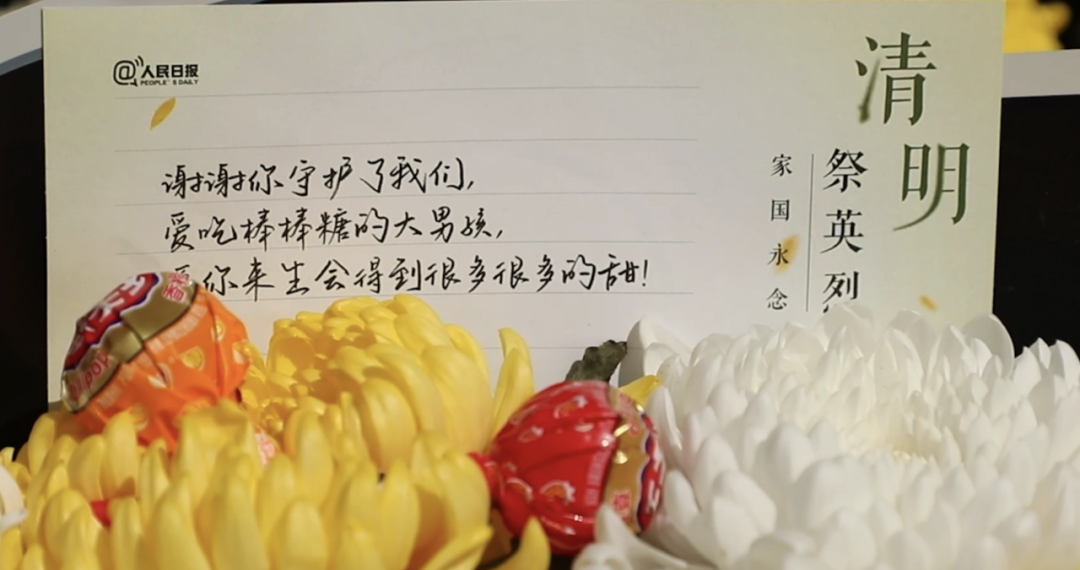 @人民日报
PEOPLE'S DAILY
谢谢你守护了我们,
爱吃棒棒糖的大男孩,
你来生会得到很多很多的甜!
清明
祭英烈
家国永念